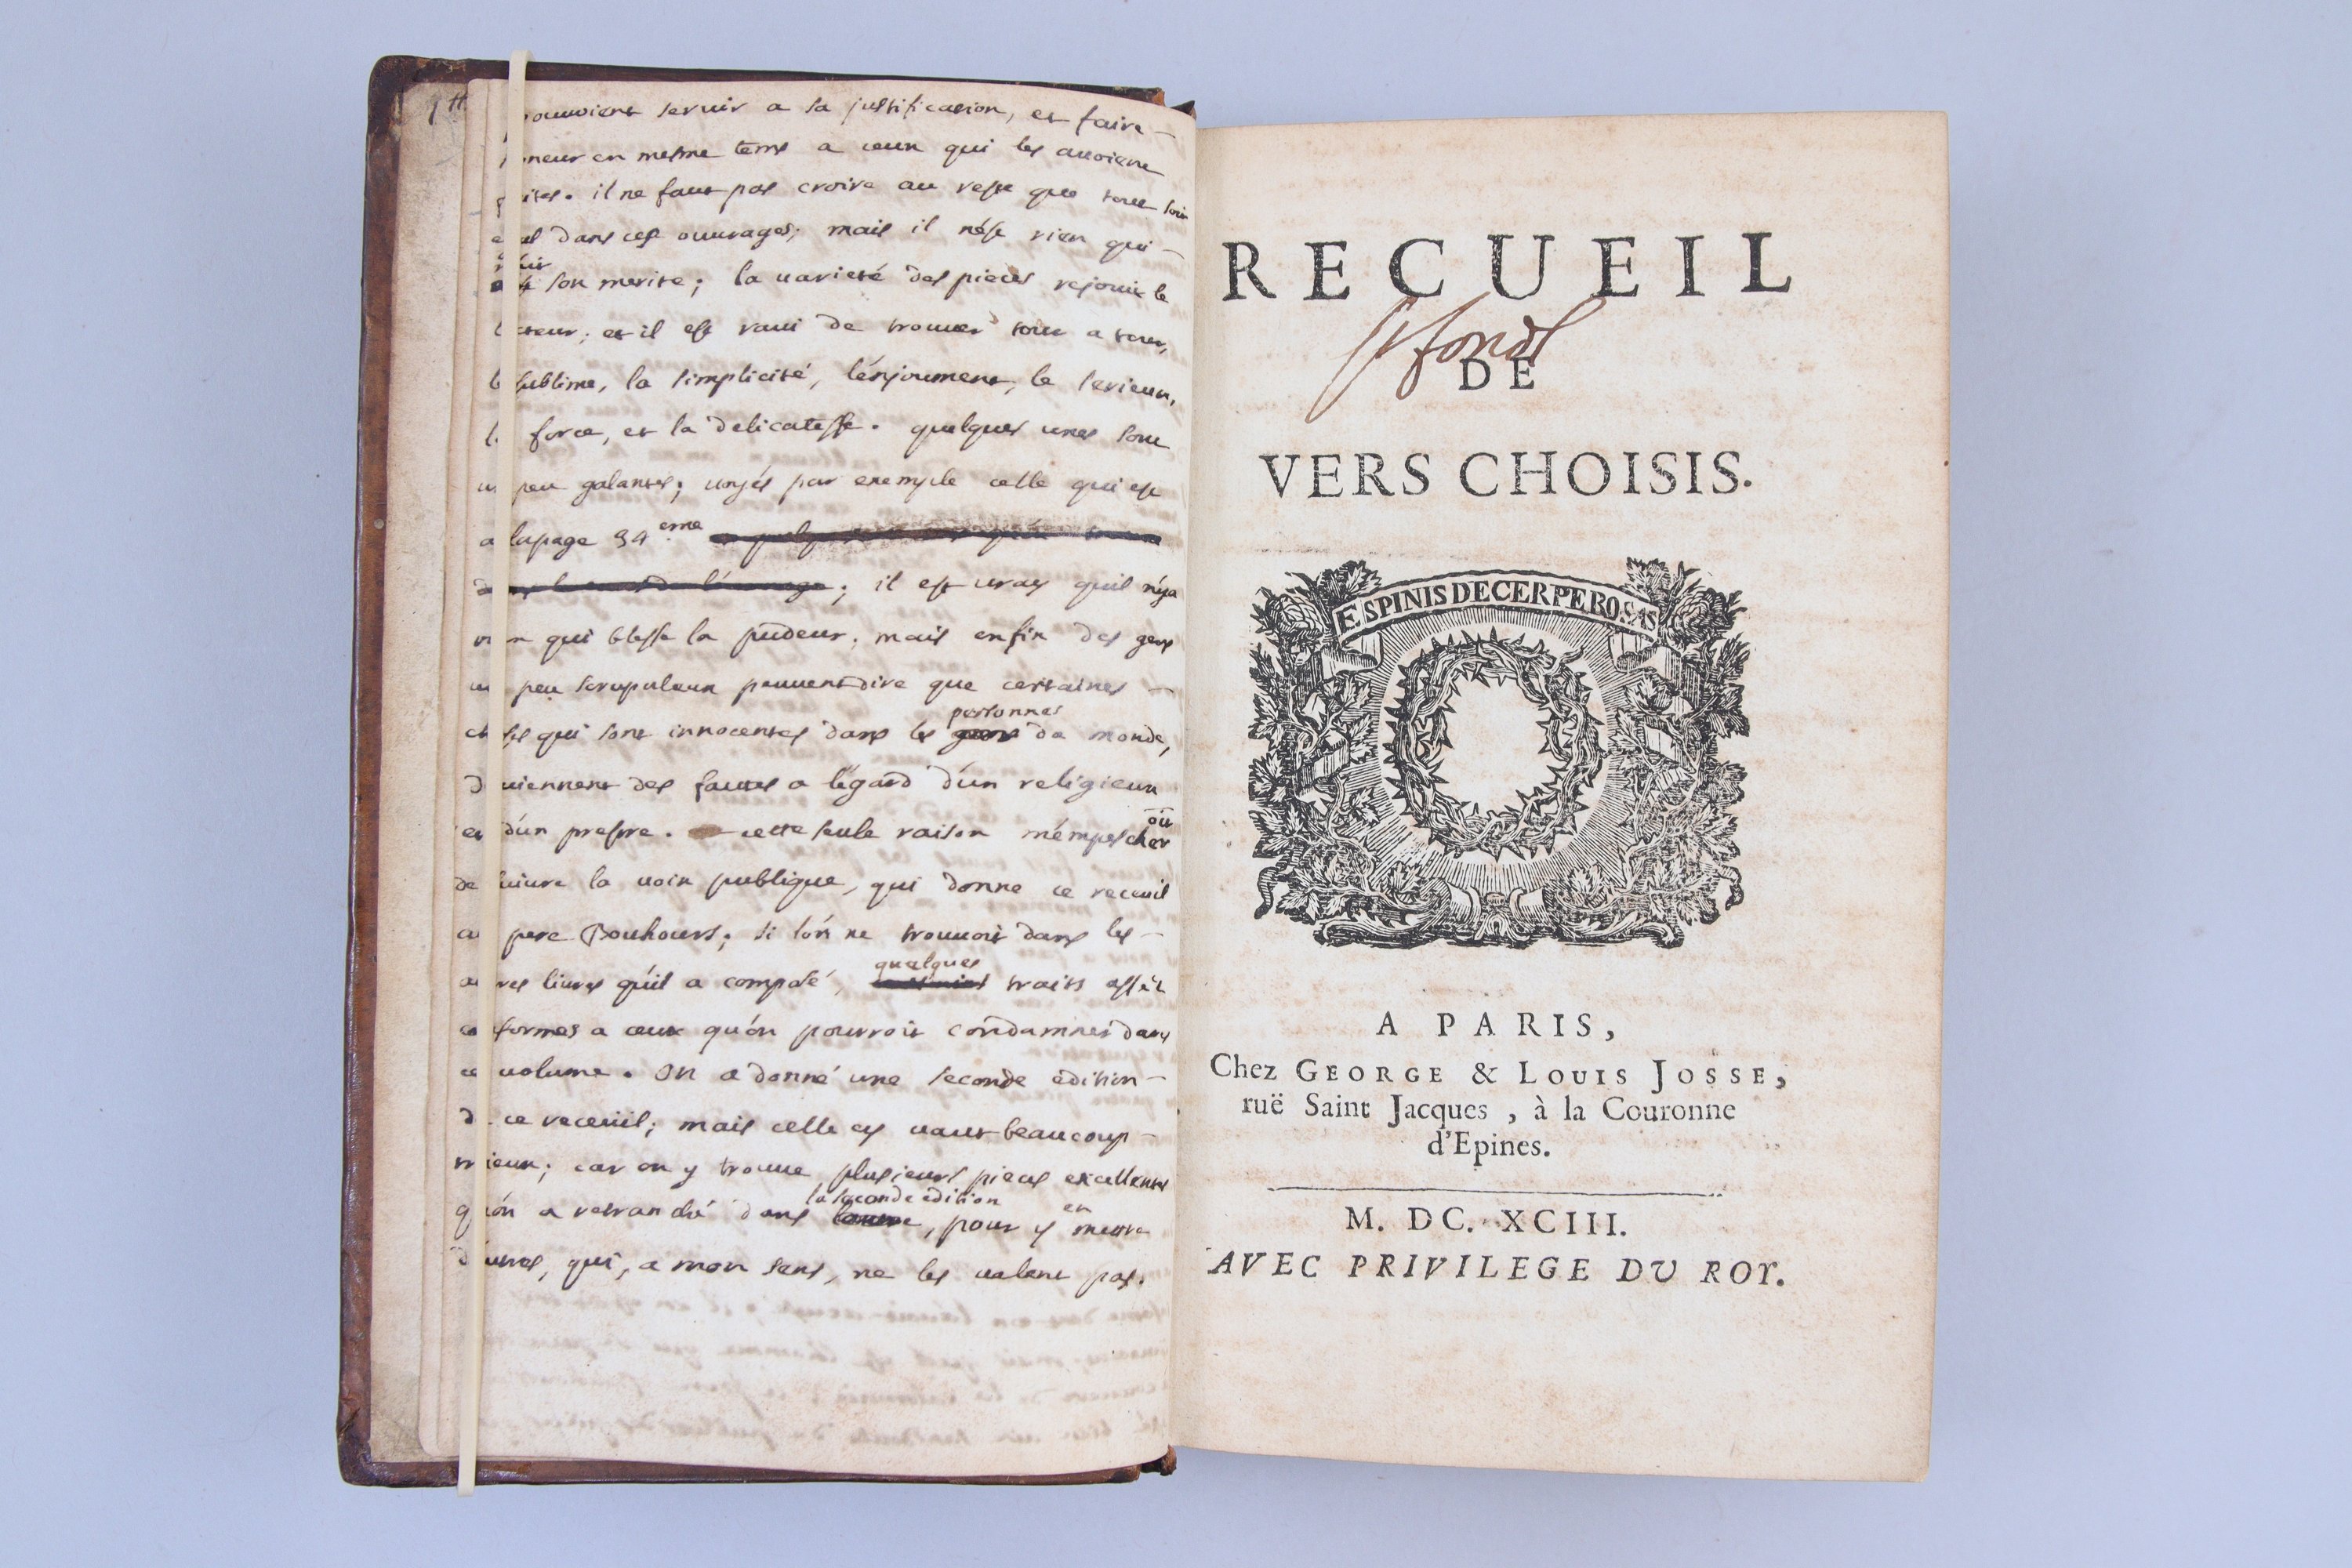 pouvoient servir a sa justification, et faire
honeur en mesme tems a ceux qui les avoient
faites. il ne faut pas croire au reste que tout soit
egal dans ces ouvrages; mais il n'est rien qui
n'ait son merite; la varieté des pieces rejouit le
lecteur; et il est ravi de trouver tour a tour,
le sublime, la simplicité, l'enjoument, le serieux,
la force, et la delicatesse. quelques unes sont
un peu galantes; voyés par exemple celle qui est
a la page 94eme
; il est vray quil n'y a
rien qui blesse la pudeur; mais enfin des gens
un peu scrupuleux peuvent dire que certaines
choses qui sont innocentes dans les personnes du monde,
deviennent des fautes a l'égard d'un religieux
et d'un prestre. cette seule raison m'empescher oit
de suivre la voix publique, qui donne ce receuil
au pere Bouhours; si l'on ne trouvoit dans les
autres livres qu'il a composé, quelques traits assés
conformes a ceux qu'on pourroit condamner dans
ce volume. On a donné une seconde edition
de ce receuil; mais celle cy vaut beaucoup
mieux; car on y trouve plusieurs pieces excellentes
qu'on a retranché dans la seconde edition, pour y en mettre
d'autres, qui, a mon sens, ne les valent pas.
RECUEIL
DE
VERS CHOISIS.
E SPINIS DECERPE ROSAS
A PARIS,
Chez GEORGE & LOUIS JOSSE,
ruë Saint Jacques, à la Couronne
d'Epines.
M. DC. XCIII.
AVEC PRIVILEGE DU ROY.